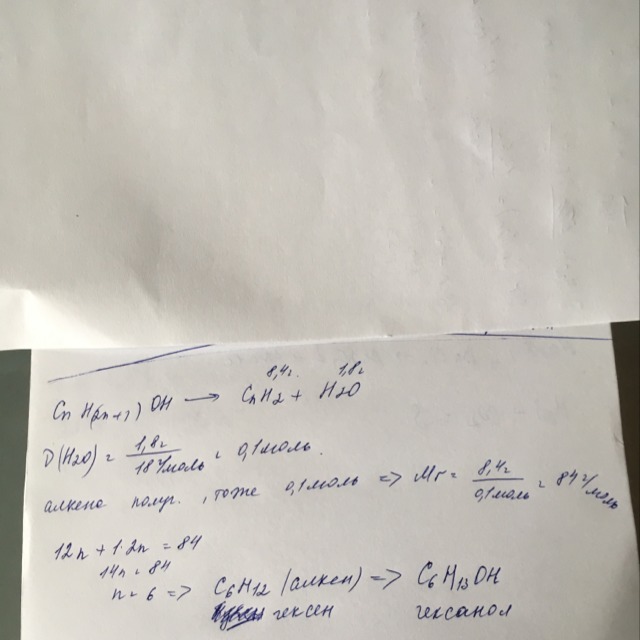 8,4г. 1,8г
CnH(2n+1)OH → CnH2 + H2O
ν(H2O) = 1,8г / 18 г/моль = 0,1 моль.
алкена получ., тоже 0,1 моль => Mr = 8,4г / 0,1 моль = 84 г/моль
12n + 1·2n = 84
14n = 84
n = 6 => C6H12 (алкен) => C6H13OH
гексен гексанол